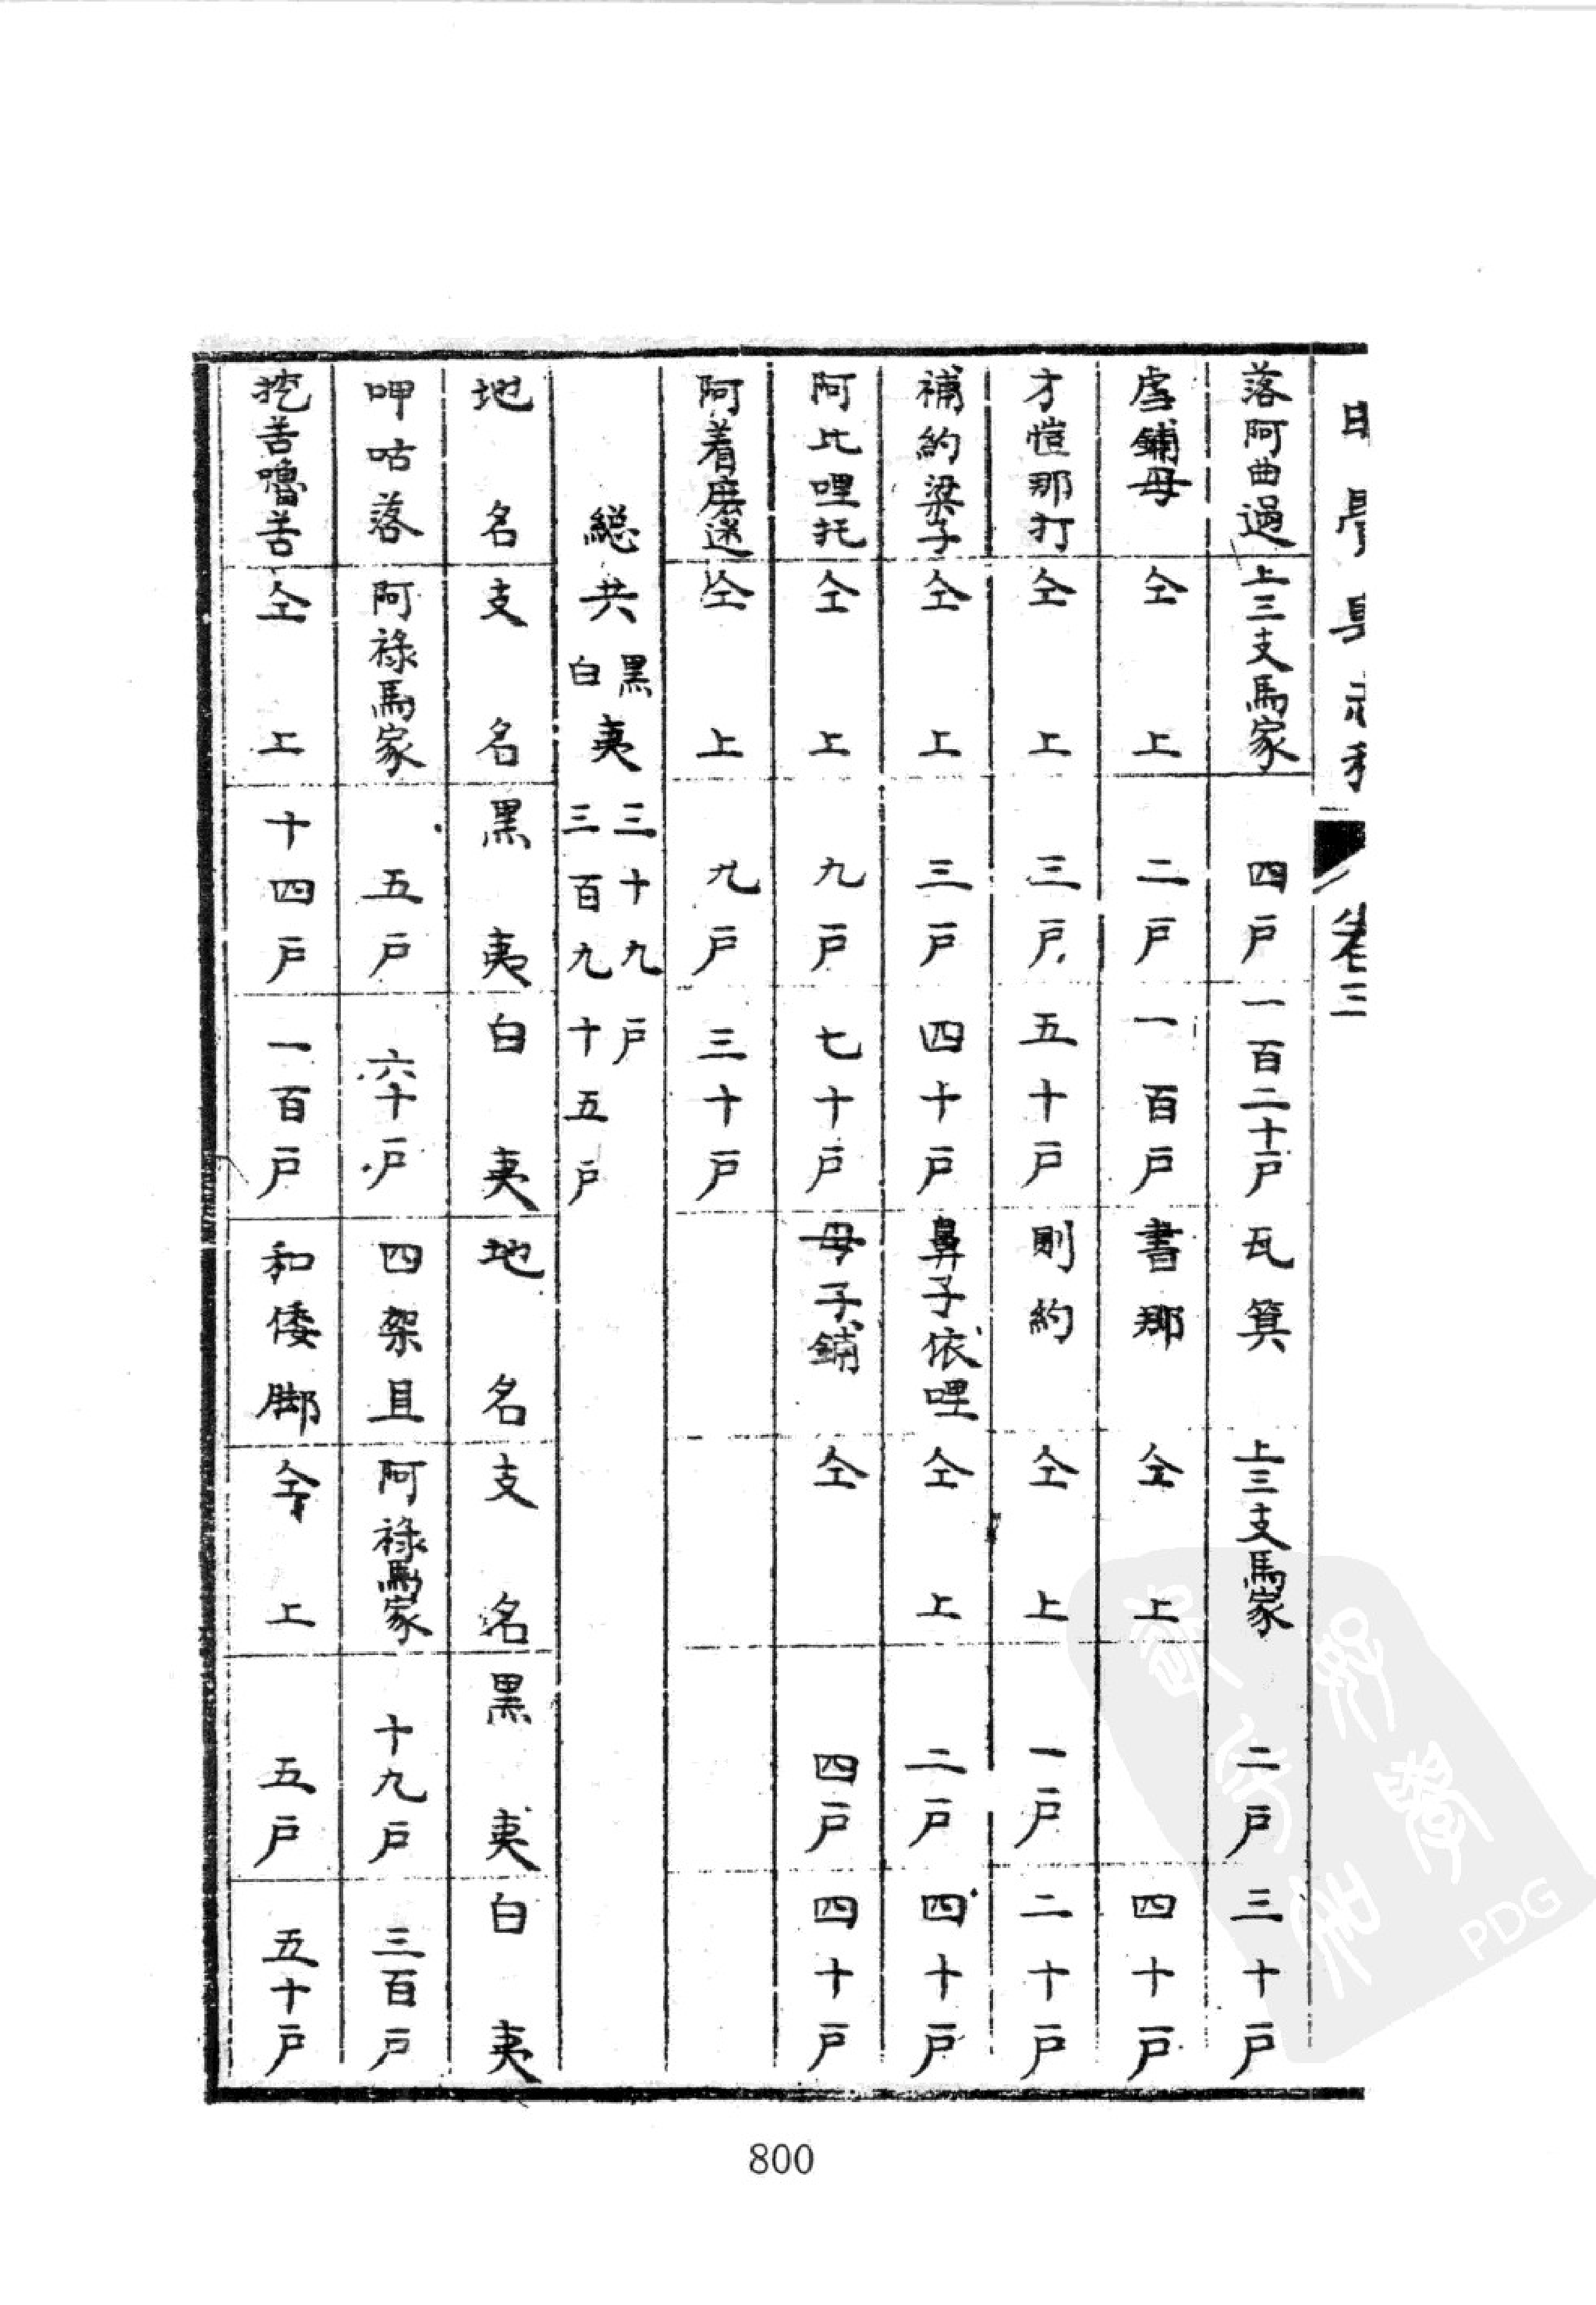 卷三
落阿曲過 上三支馬家 四戶 一百二十戶 瓦箕 上三支馬家 二戶 三十戶
鋪母 仝上 二戶 一百戶 書那 仝上 四十戶
才愷那打 仝上 三戶 五十戶 則約 仝上 一戶 二十戶
補約梁子 仝上 三戶 四十戶 鼻子依哩 仝上 二戶 四十戶
阿比哩托 仝上 九戶 七十戶 母子鋪 仝 四戶 四十戶
阿着 仝上 九戶 三十戶
總共 黑白夷 三十九戶 三百九十五戶
地名 支名 黑夷 白夷 地名 支名 黑夷 白夷
呷咕落 阿祿馬家 五戶 六十戶 四架且 阿祿馬家 十九戶 三百戶
挖苦嚕苦 仝上 十四戶 一百戶 和倭脚 仝上 五戶 五十戶
800
PDG